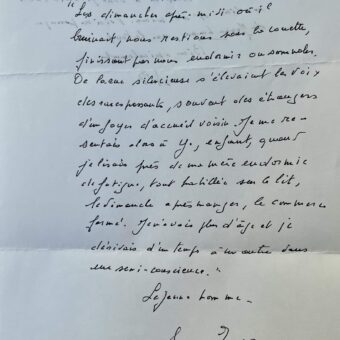 "Les dimanches après-midi où il
bruinait, nous restions sous la couette,
finissant par nous endormir ou somnoler.
De la rue silencieuse s'élevaient les voix
des rares passants, souvent des étrangers
d'un foyer d'accueil voisin. Je me re-
sentais alors à Y., enfant, quand
je lisais près de ma mère endormie
de fatigue, tout habillée sur le lit,
le dimanche après manger, le commerce
fermé. Je n'avais plus d'âge et je
dérivais d'un temps à un autre dans
une semi-conscience."
Le jeune homme -